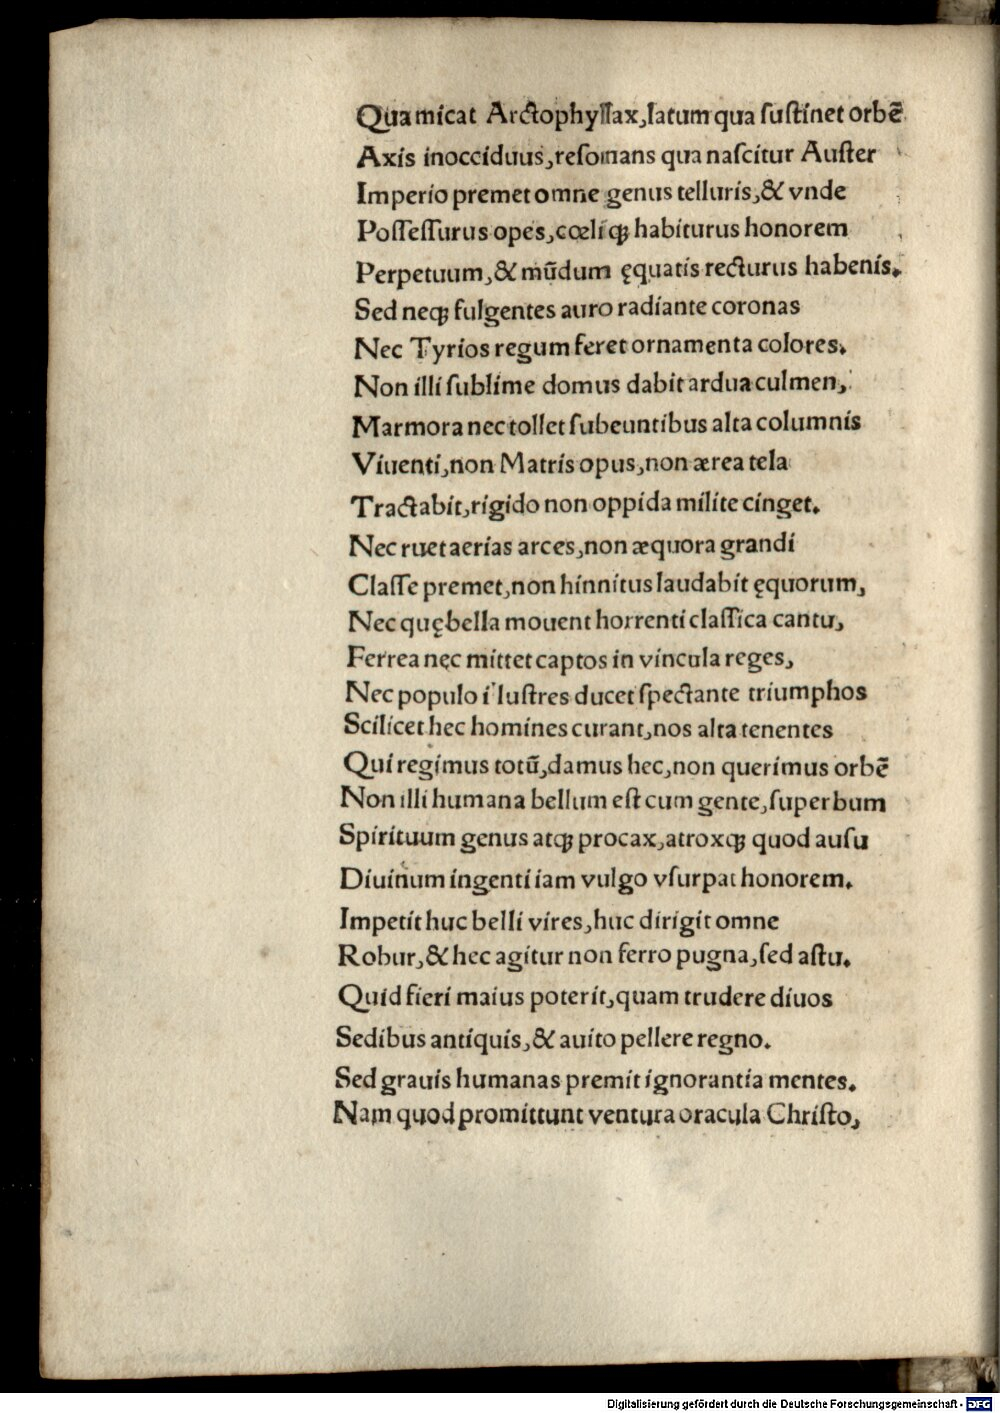 Qua micat Arctophyllax, latum qua ſuſtinet orbē
Axis inocciduus, reſonans qua naſcitur Auſter
Imperio premet omne genus telluris, & vnde
Poſſeſſurus opes, cœliqꝫ habiturus honorem
Perpetuum, & mūdum ęquatis recturus habenis.
Sed neqꝫ fulgentes auro radiante coronas
Nec Tyrios regum feret ornamenta colores.
Non illi ſublime domus dabit ardua culmen,
Marmora nec tollet ſubeuntibus alta columnis
Viuenti, non Matris opus, non ærea tela
Tractabit, rigido non oppida milite cinget.
Nec ruet aerias arces, non æquora grandi
Claſſe premet, non hinnitus laudabit ęquorum,
Nec quę bella mouent horrenti claſſica cantu,
Ferrea nec mittet captos in vincula reges,
Nec populo illuſtres ducet ſpectante triumphos
Scilicet hec homines curant, nos alta tenentes
Qui regimus totū, damus hec, non querimus orbē
Non illi humana bellum eſt cum gente, ſuperbum
Spirituum genus atqꝫ procax, atroxqꝫ quod auſu
Diuinum ingenti iam vulgo vſurpat honorem.
Impetit huc belli vires, huc dirigit omne
Robur, & hec agitur non ferro pugna, ſed aſtu.
Quid fieri maius poterit, quam trudere diuos
Sedibus antiquis, & auito pellere regno.
Sed grauis humanas premit ignorantia mentes.
Nam quod promittunt ventura oracula Chriſto,
Digitalisierung gefördert durch die Deutsche Forschungsgemeinschaft - DFG